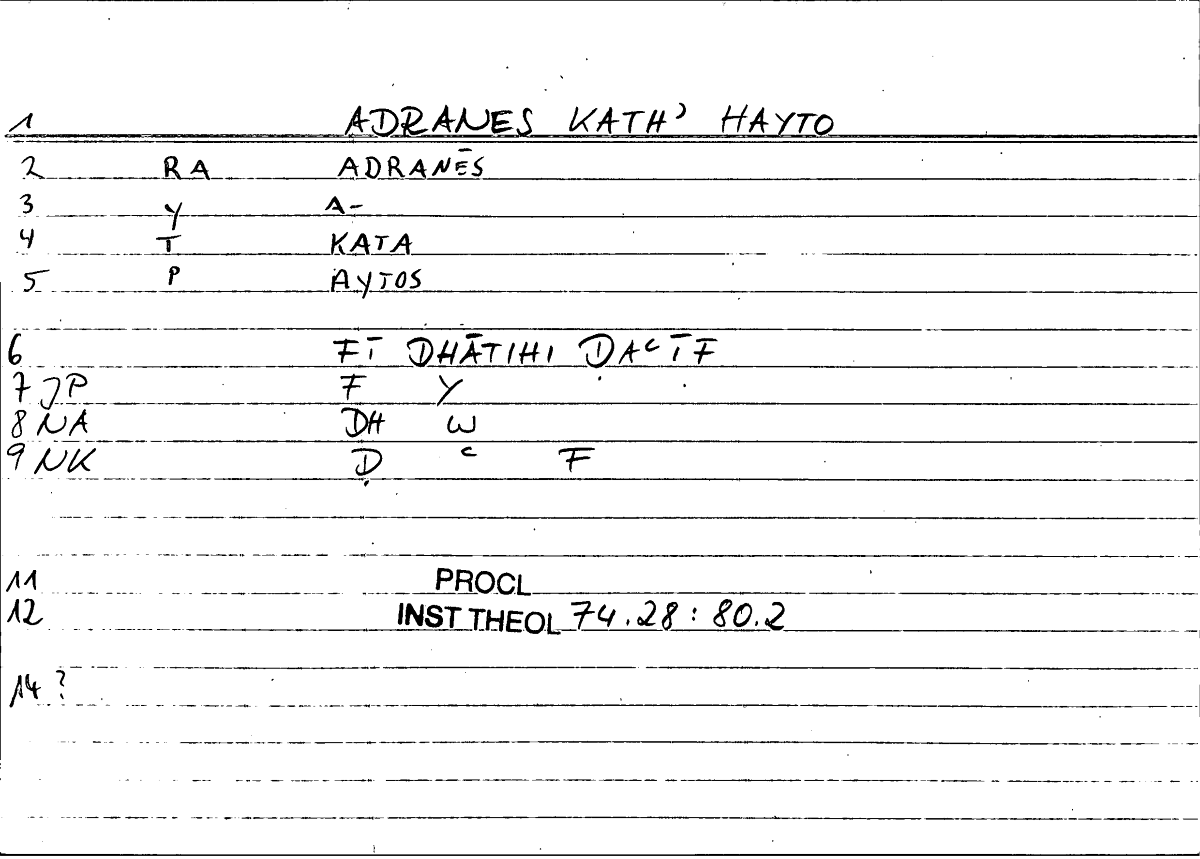 1 ADRANES KATH' HAYTO
2 RA ADRANĒS
3 Y A-
4 T KATA
5 P AYTOS
6 FĪ DHĀTIHI ḌAᶜĪF
7 JP F Y
8 NA DH W
9 NK Ḍ ᶜ F
11 PROCL
12 INST THEOL 74.28 : 80.2
14 ?